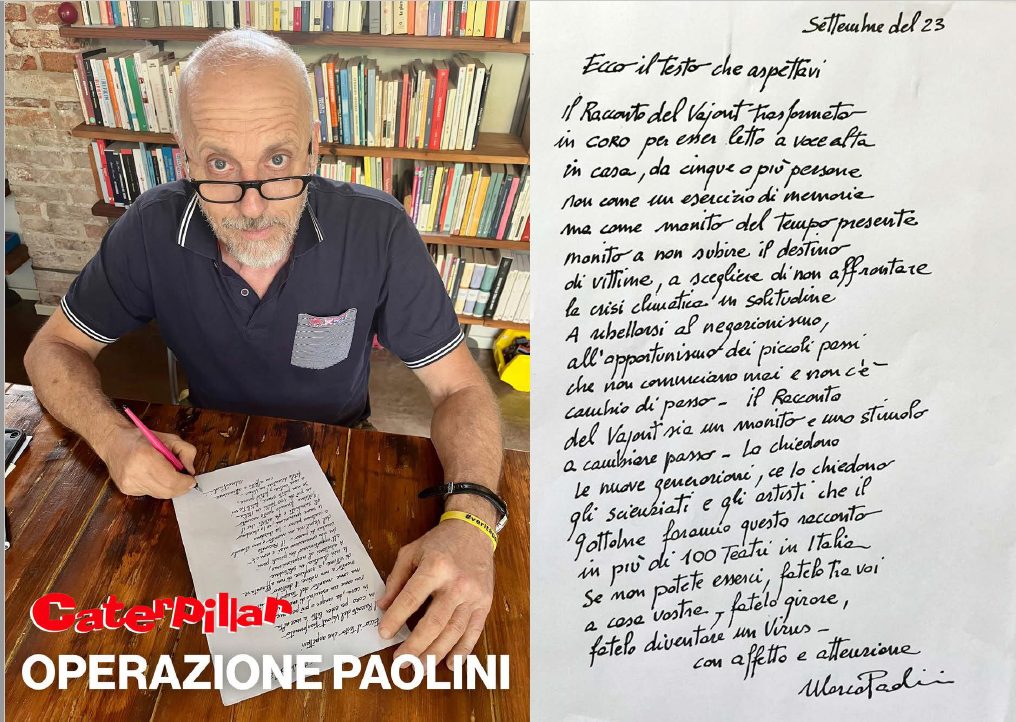 Caterpillar
OPERAZIONE PAOLINI
Settembre del 23
Ecco il testo che aspettavi
il Racconto del Vajont trasformato
in CORO per esser letto a voce alta
in casa, da cinque o più persone
non come un esercizio di memoria
ma come monito del tempo presente
monito a non subire il destino
di vittime, a scegliere di non affrontare
la crisi climatica in solitudine
A ribellarsi al negazionismo,
all'opportunismo dei piccoli passi
che non cominciano mai e non c'è
cambio di passo - il Racconto
del Vajont sia un monito e uno stimolo
a cambiare passo - Lo chiedono
le nuove generazioni, ce lo chiedono
gli scienziati e gli artisti che il
9 ottobre faranno questo racconto
in più di 100 Teatri in Italia
Se non potete esserci, fatelo tra voi
a casa vostra, fatelo girare,
fatelo diventare un Virus -
con affetto e attenzione
Marco Paolini